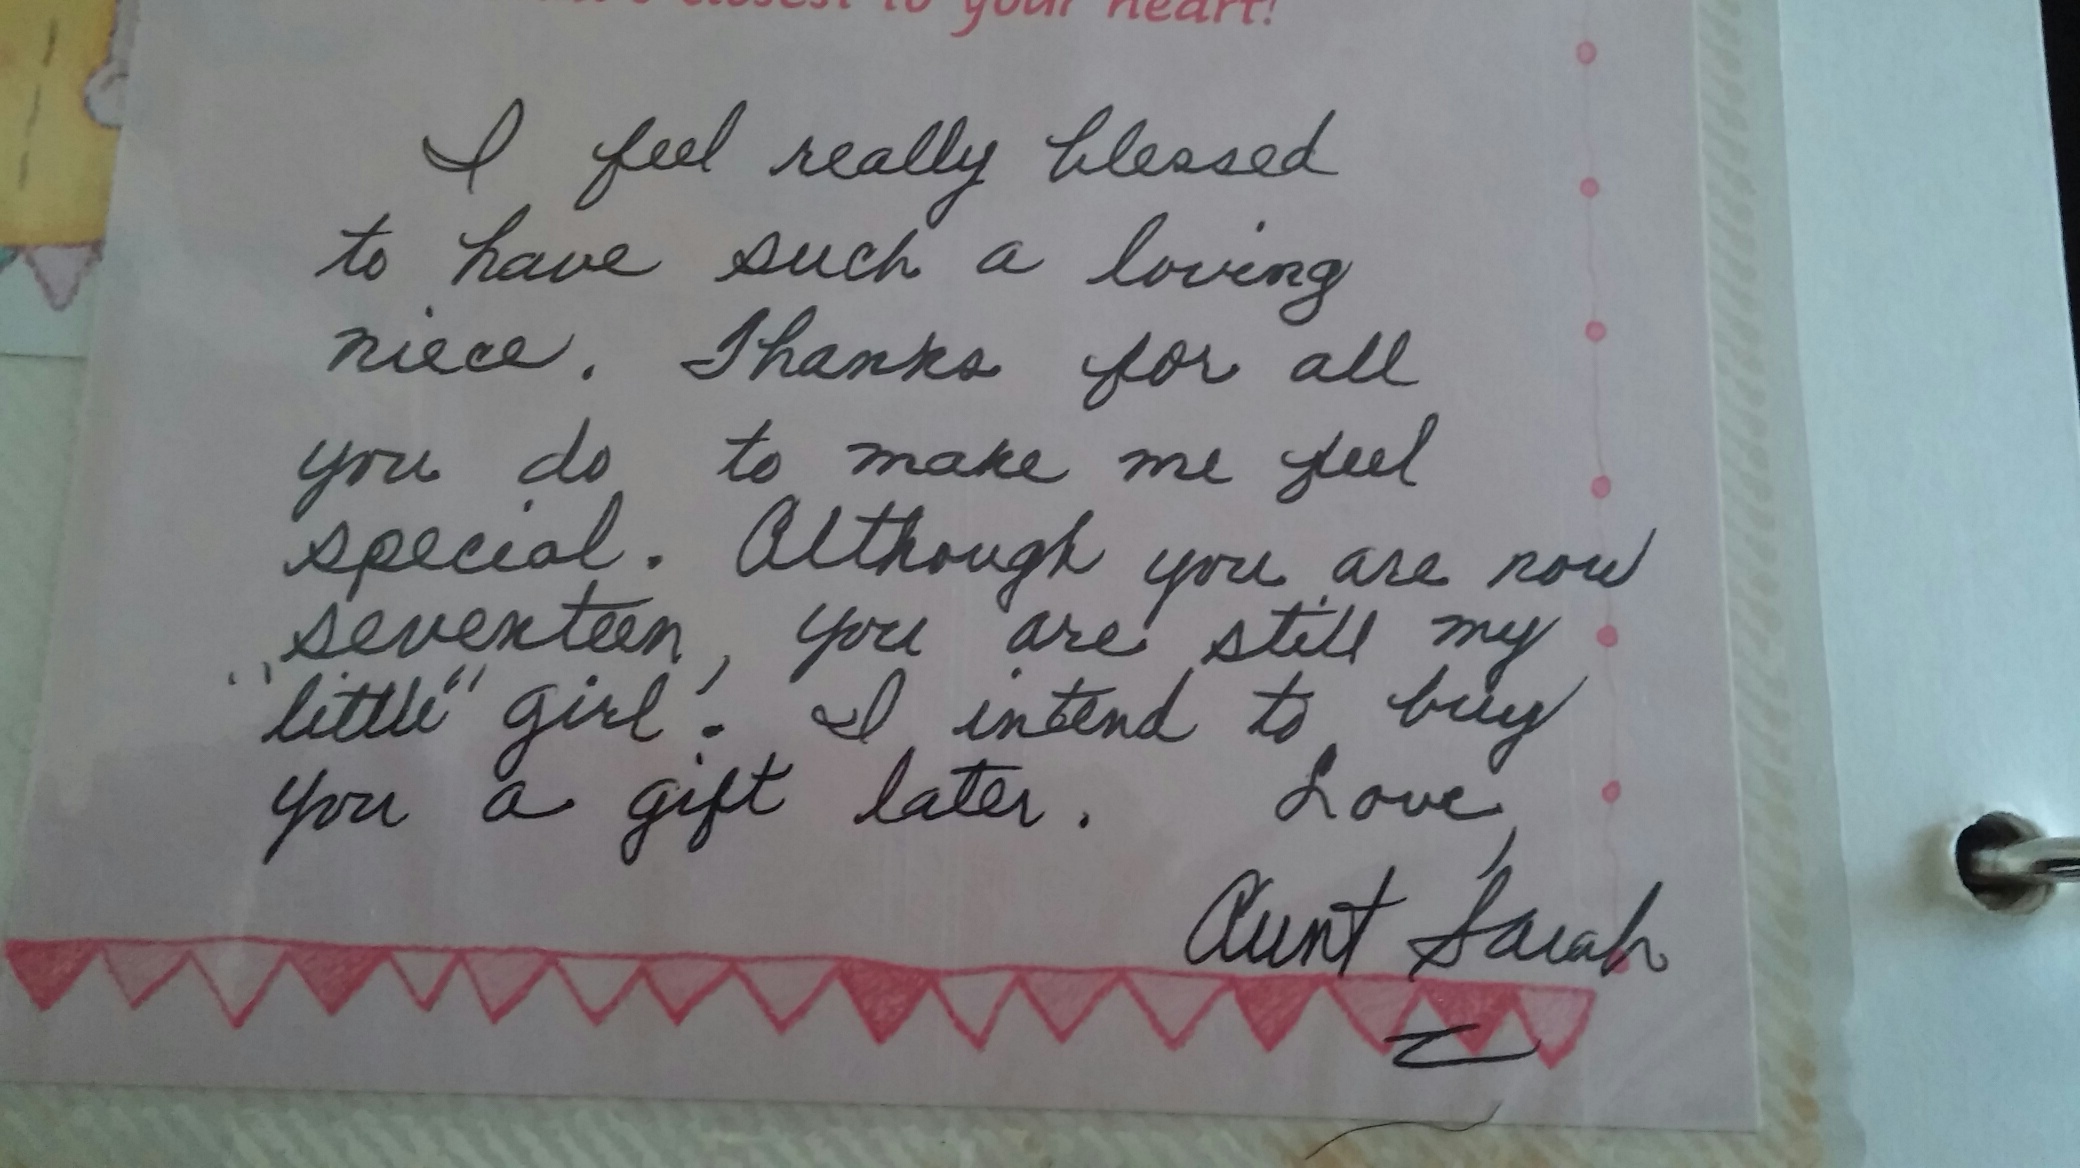 closest to your heart!
I feel really blessed
to have such a loving
niece. Thanks for all
you do to make me feel
special. Although you are now
seventeen, you are still my
"little" girl! I intend to buy
you a gift later. Love,
Aunt Sarah